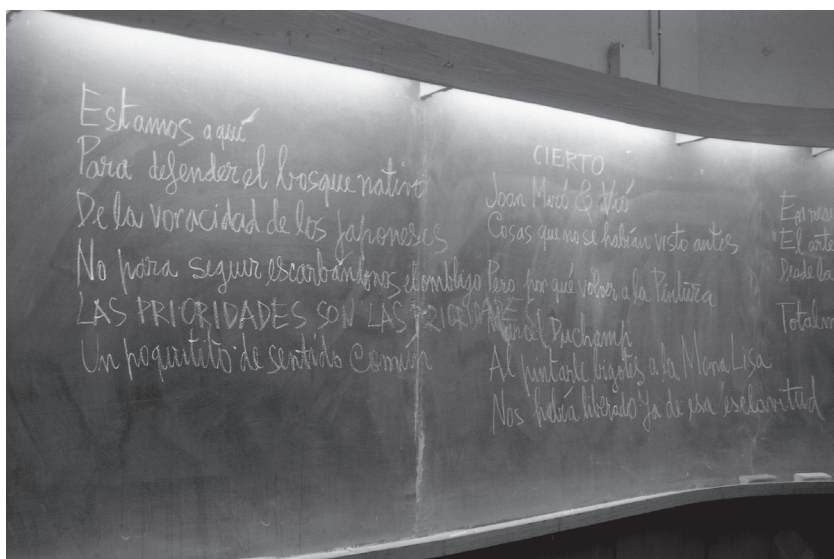 Estamos aquí
Para defender el bosque nativo
De la voracidad de los japoneses
No para seguir escarbándonos el ombligo
LAS PRIORIDADES SON LAS PRIORIDADES
Un poquitito de sentido Común
CIERTO
Joan Miró & Vió
Cosas que no se habían visto antes
Pero por qué volver a la Pintura
Marcel Duchamp
Al pintarle bigotes a la Mona Lisa
Nos había liberado ya de esa esclavitud
El arte
Desde la